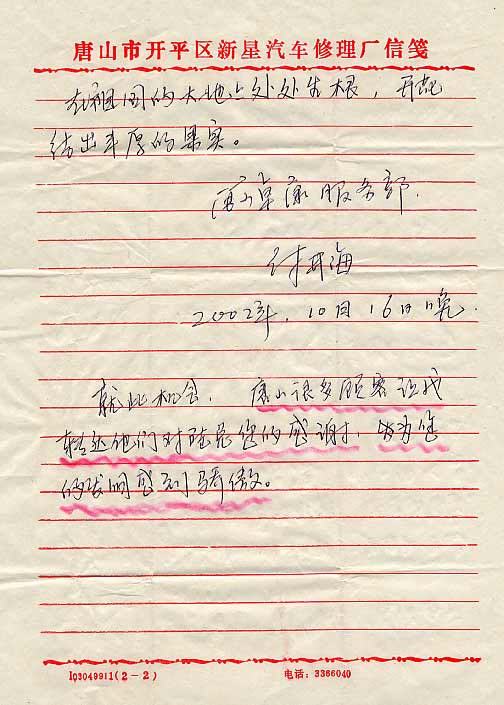 唐山市开平区新星汽车修理厂信笺
在祖国的大地上处处生根，开花
结出丰厚的果实。
唐山卓康服务部.
付开海
2002年.10月16日晚.
就此机会，唐山很多顾客让我
转达他们对陆总您的感谢，为您
的发明感到骄傲。
I03049911(2-2)
电话：3366040